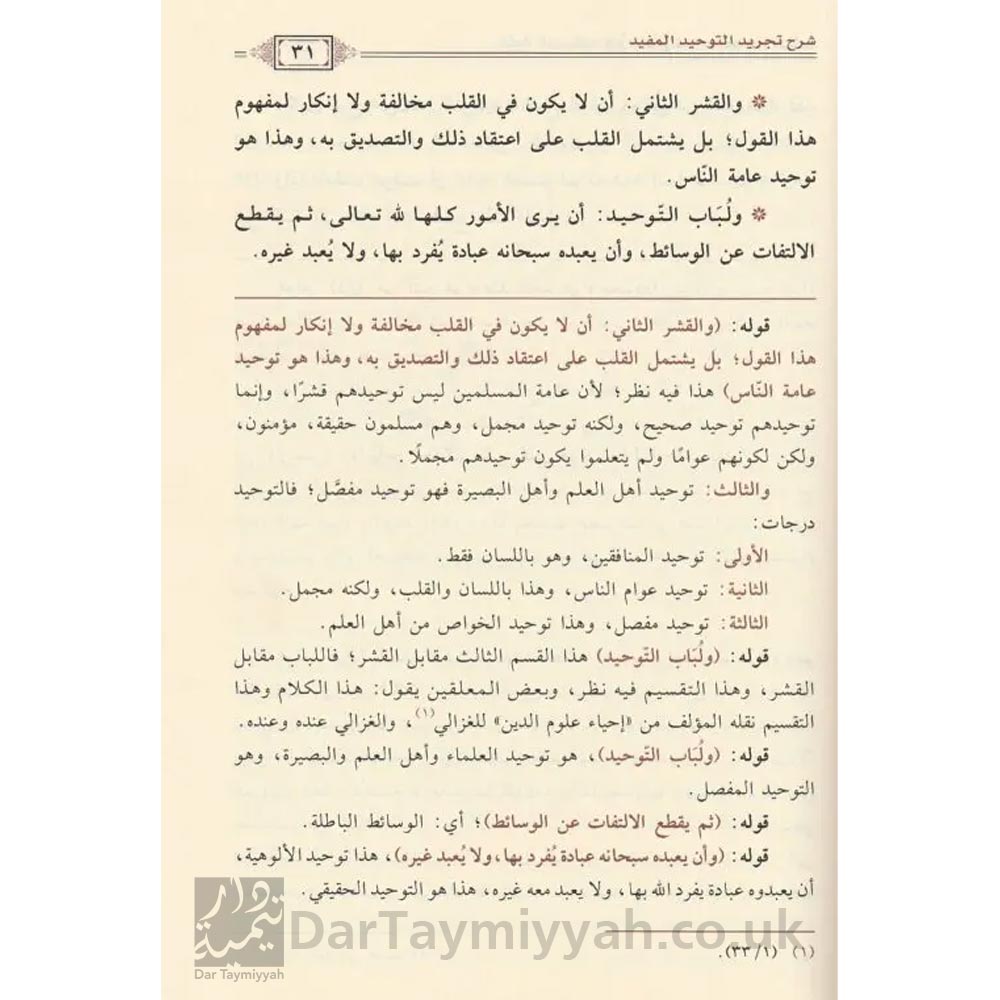 شرح تجريد التوحيد المفيد
٣١
* والقشر الثاني: أن لا يكون في القلب مخالفة ولا إنكار لمفهوم
هذا القول؛ بل يشتمل القلب على اعتقاد ذلك والتصديق به، وهذا هو
توحيد عامة النّاس.
* ولُبَاب التّوحيد: أن يرى الأمور كلها لله تعالى، ثم يقطع
الالتفات عن الوسائط، وأن يعبده سبحانه عبادة يُفرد بها، ولا يُعبد غيره.
قوله: (والقشر الثاني: أن لا يكون في القلب مخالفة ولا إنكار لمفهوم
هذا القول؛ بل يشتمل القلب على اعتقاد ذلك والتصديق به، وهذا هو توحيد
عامة النّاس) هذا فيه نظر؛ لأن عامة المسلمين ليس توحيدهم قشرًا، وإنما
توحيدهم توحيد صحيح، ولكنه توحيد مجمل، وهم مسلمون حقيقة، مؤمنون،
ولكن لكونهم عوامًا ولم يتعلموا يكون توحيدهم مجملًا.
والثالث: توحيد أهل العلم وأهل البصيرة فهو توحيد مفصَّل؛ فالتوحيد
درجات:
الأولى: توحيد المنافقين، وهو باللسان فقط.
الثانية: توحيد عوام الناس، وهذا باللسان والقلب، ولكنه مجمل.
الثالثة: توحيد مفصل، وهذا توحيد الخواص من أهل العلم.
قوله: (ولُبَاب التّوحيد) هذا القسم الثالث مقابل القشر؛ فاللباب مقابل
القشر، وهذا التقسيم فيه نظر، وبعض المعلقين يقول: هذا الكلام وهذا
التقسيم نقله المؤلف من «إحياء علوم الدين» للغزالي(١)، والغزالي عنده وعنده.
قوله: (ولُبَاب التّوحيد)، هو توحيد العلماء وأهل العلم والبصيرة، وهو
التوحيد المفصل.
قوله: (ثم يقطع الالتفات عن الوسائط)؛ أي: الوسائط الباطلة.
قوله: (وأن يعبده سبحانه عبادة يُفرد بها، ولا يُعبد غيره)، هذا توحيد الألوهية،
أن يعبدوه عبادة يفرد الله بها، ولا يعبد معه غيره، هذا هو التوحيد الحقيقي.
(١) (١/ ٣٣).
دار تيمية
Dar Taymiyyah
DarTaymiyyah.co.uk